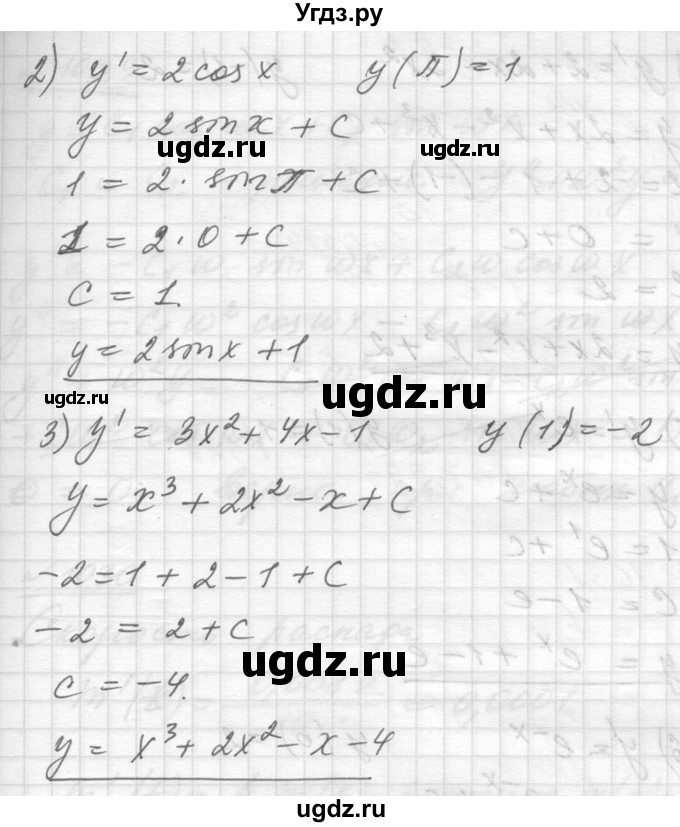 Угдз.ру
2) y' = 2 cos x y(π) = 1
y = 2 sin x + C
ugdz.ru ugdz.ru
1 = 2 · sin π + C
1 = 2 · 0 + C
C = 1.
y = 2 sin x + 1
ugdz.ru
ugdz.ru
3) y' = 3x² + 4x - 1 y(1) = -2
y = x³ + 2x² - x + C
-2 = 1 + 2 - 1 + C
-2 = 2 + C
ugdz.ru
C = -4.
y = x³ + 2x² - x - 4
ugdz.ru